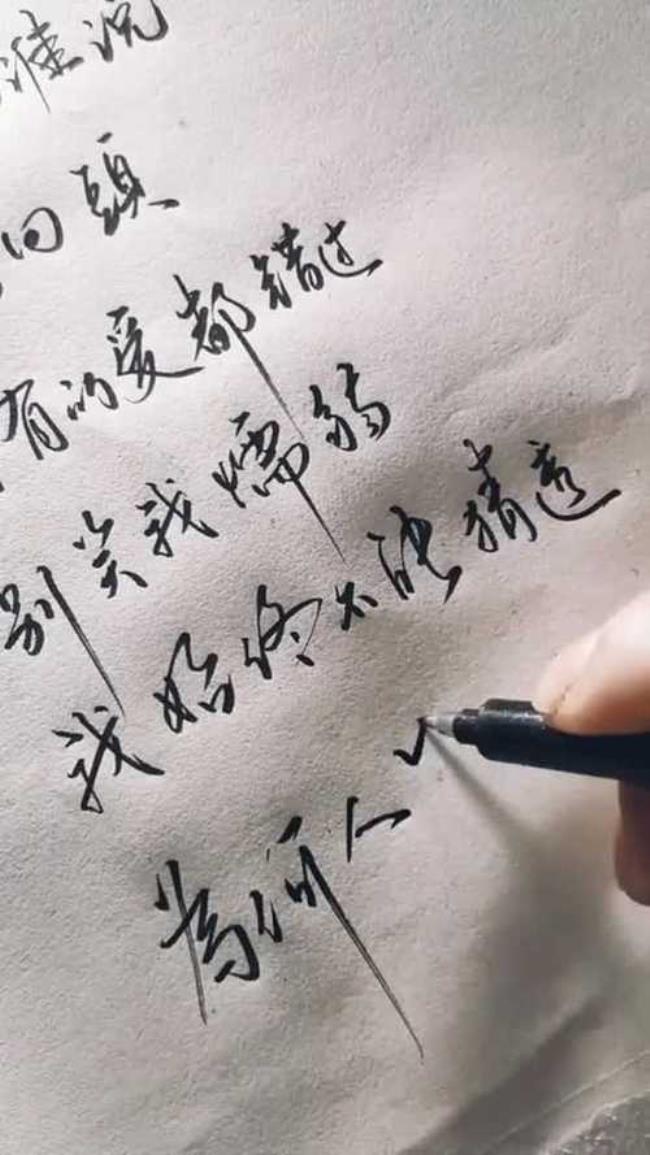 谁说
回頭
有的爱都错过
别笑我懦弱
我始终不能猜透
為何人